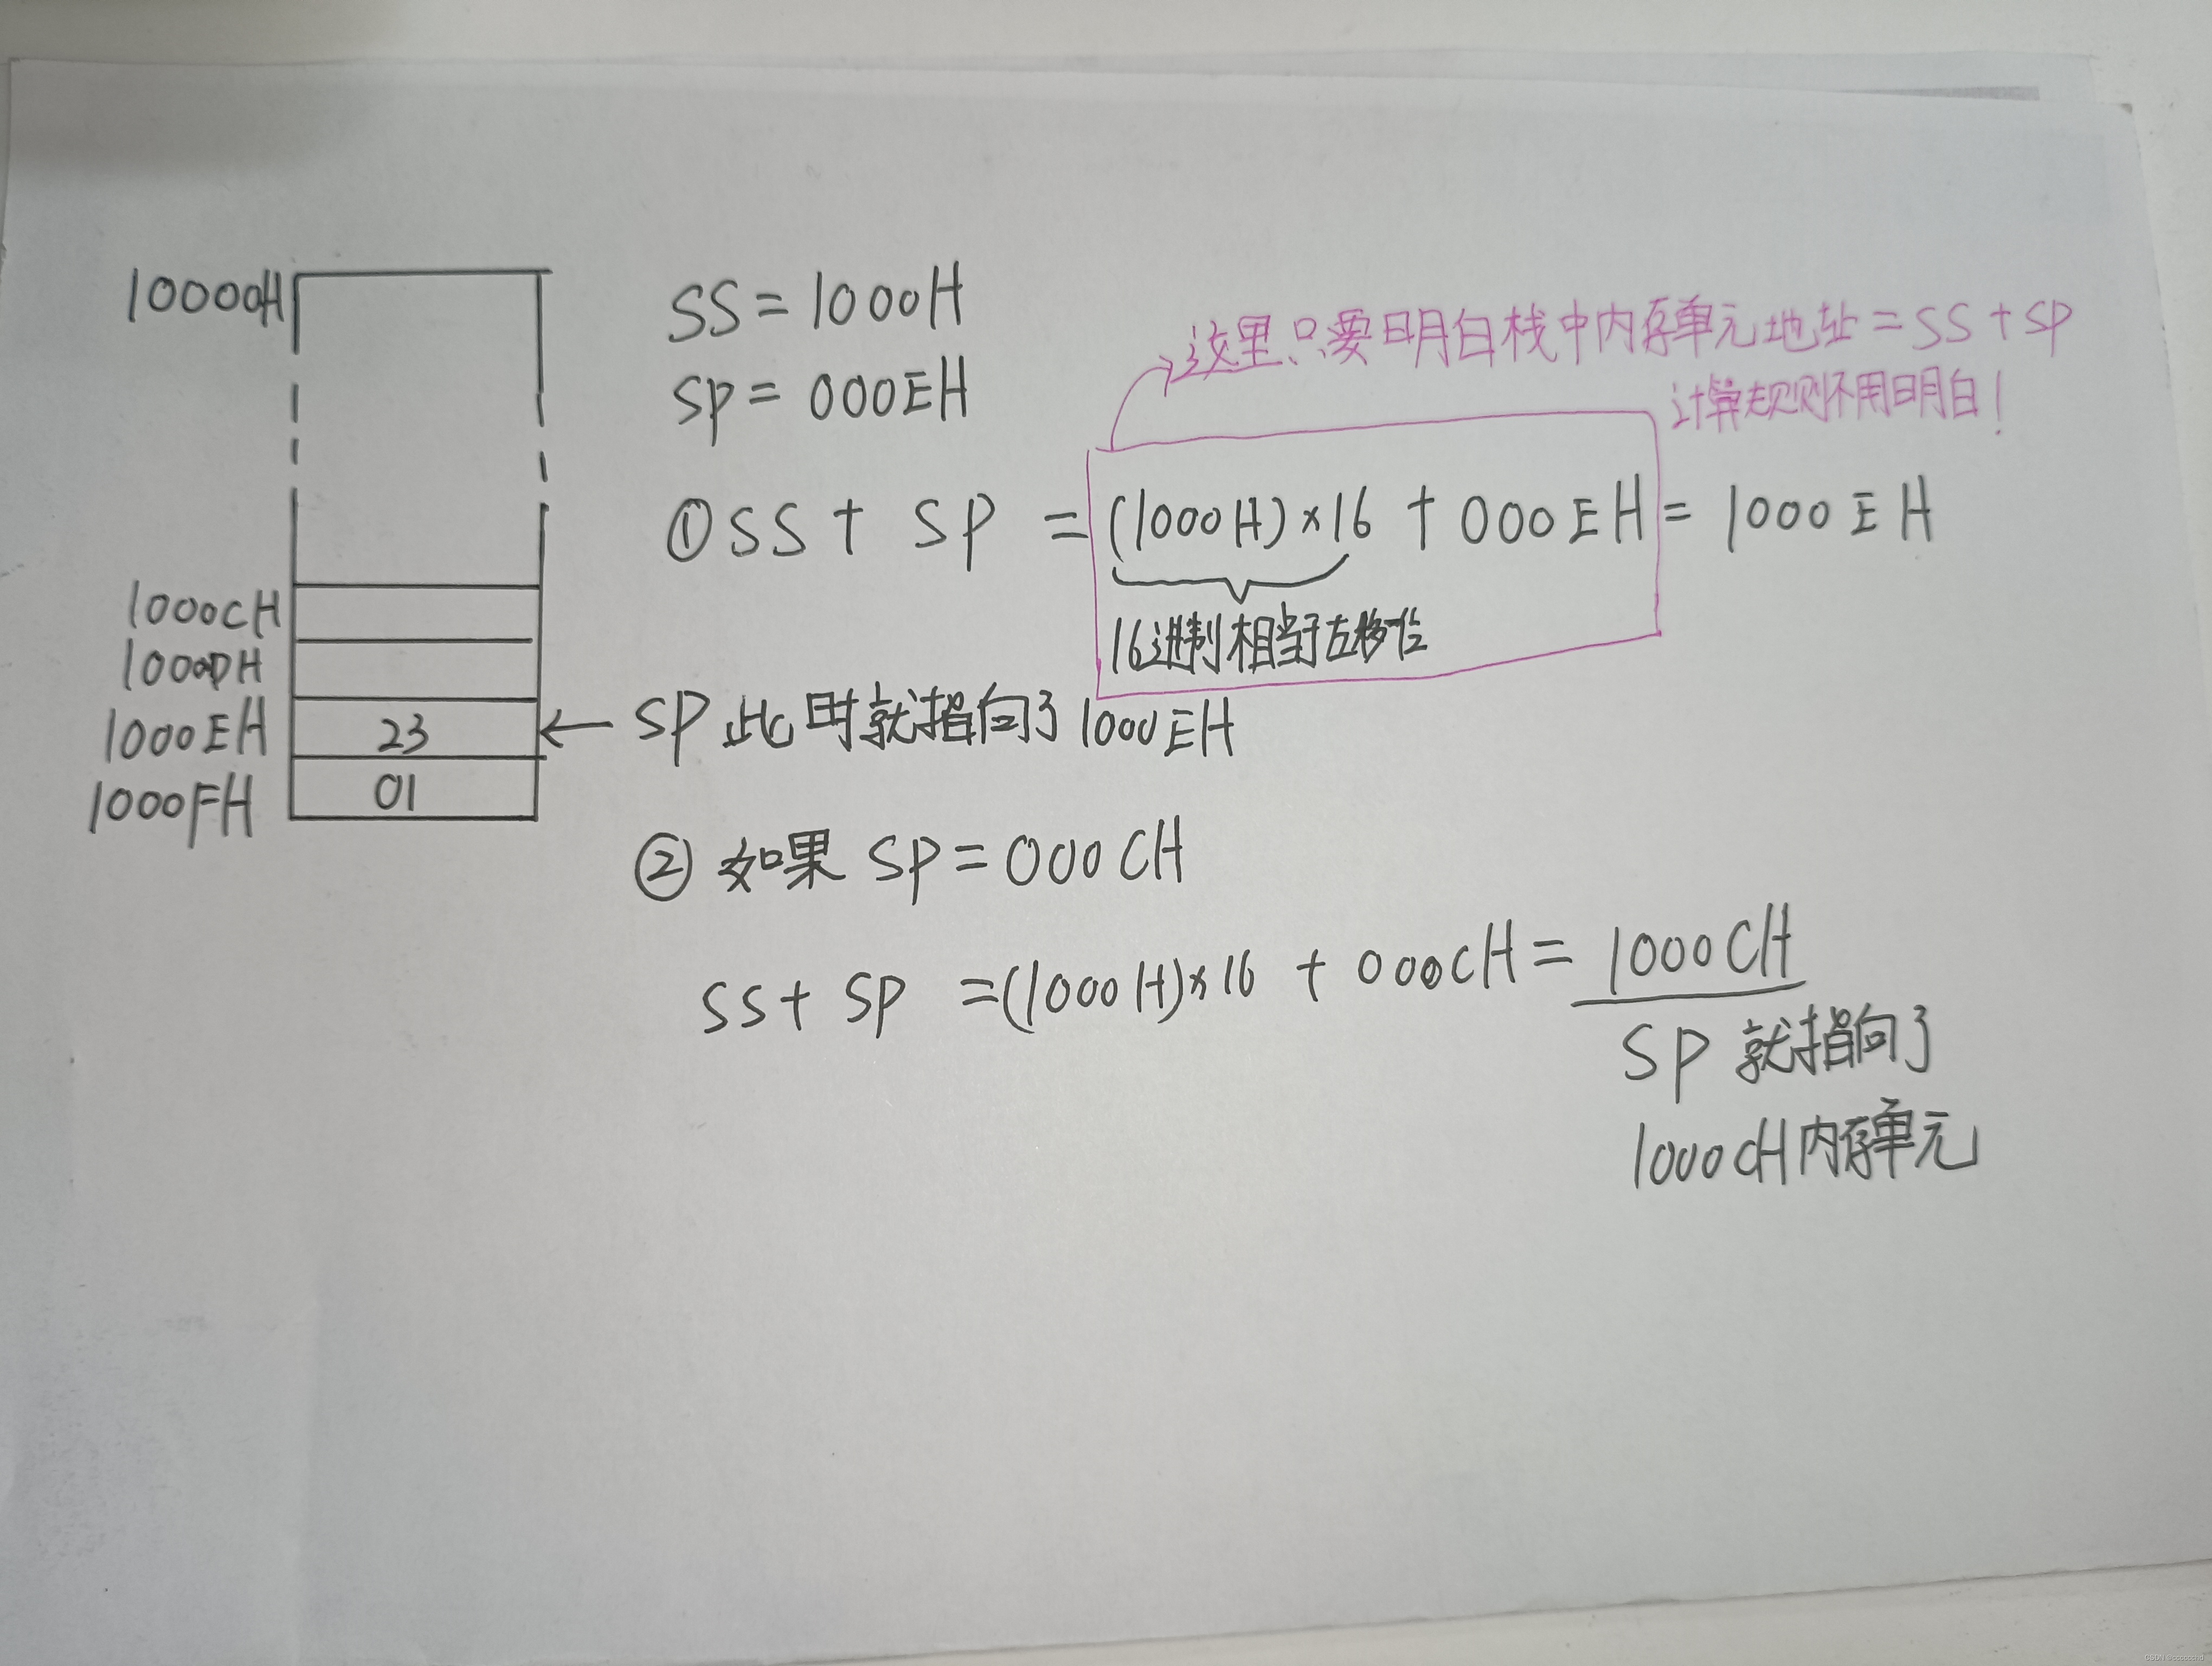 10000H
1000CH
1000DH
1000EH
23
1000FH
01
SS=1000H
SP=000EH
这里只要明白栈中内存单元地址=SS+SP
计算规则不用明白!
①SS+SP=(1000H)×16+000EH=1000EH
16进制相当于左移位
SP此时就指向了1000EH
②如果SP=000CH
SS+SP=(1000H)×16+000CH=1000CH
SP就指向了
1000CH内存单元